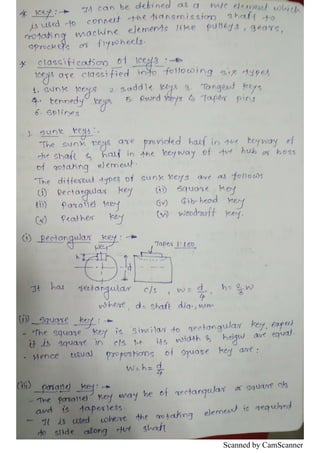 * Key :- It can be defined as a m/c element which
is used to connect the transmission shaft to
rotating machine elements like pulleys, gears,
sprockets or flywheels.
* classification of keys :-
keys are classified into following six types
1. sunk keys 2. saddle keys 3. Tangent keys
4. kennedy keys 5. Round keys & Taper pins
6. splines
1. sunk keys :-
The sunk keys are provided half in the keyway of
the shaft & half in the keyway of the hub or boss
of rotating element.
The different types of sunk keys are as follows
(i) Rectangular key (ii) square key
(iii) Parallel key (iv) Gib-head key
(v) Feather key (vi) woodruff key.
(i) Rectangular key :-
Key
Taper 1:100
h
d
It has rectangular c/s , w = d/4 , h = 2/3 w
where, d = shaft dia, mm
(ii) square key :-
- The square key is similar to rectangular key, except
it is square in c/s i.e its width & height are equal.
- Hence usual proportions of square key are :
w = h = d/4
(iii) parallel key :-
- The parallel key may be of rectangular or square c/s
and is taperless.
- It is used where the rotating element is required
to slide along the shaft
Scanned by CamScanner